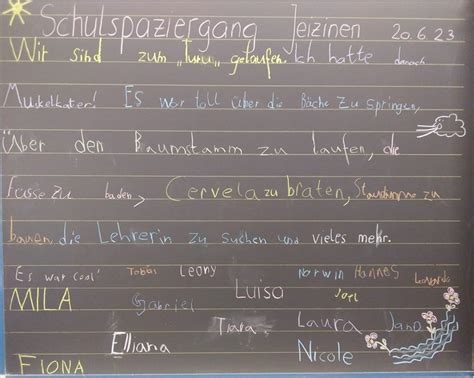 Schulspaziergang Jeizinen 20.6.23
Wir sind zum „Turu" gelaufen. Ich hatte danach
Muskelkater! Es war toll über die Bäche zu springen,
über den Baumstamm zu laufen, die
Füsse zu baden, Cervela zu braten, Staudämme zu
bauen, die Lehrerin zu suchen und vieles mehr.
Es war cool! Tobias Leony Norwin Hannes Leonardo
MILA Gabriel Luisa Joel
Tiara Laura Jana
Elliana Nicole
FIONA